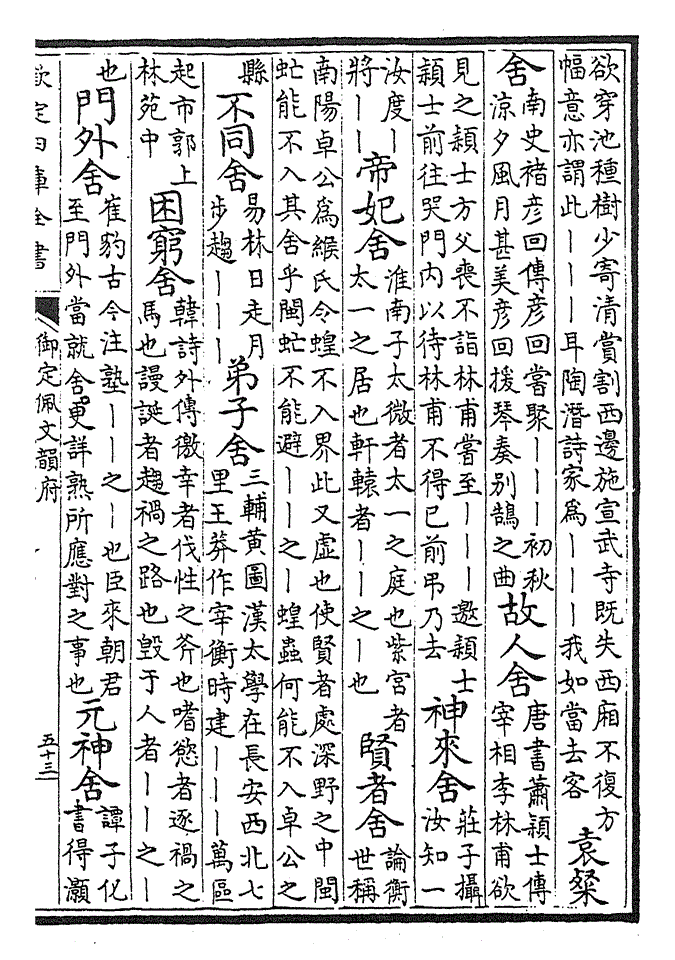 欲穿池種樹少寄清賞割西邊施宣武寺既失西廂不復方
幅意亦謂此｜｜｜耳陶潛詩家為｜｜｜我如當去客
袁粲
舍
南史褚彥回傳彥回嘗聚｜｜｜初秋
涼夕風月甚美彥回援琴奏别鵠之曲
故人舍
唐書蕭穎士傳
宰相李林甫欲
見之穎士方父喪不詣林甫嘗至｜｜｜邀穎士
穎士前往哭門內以待林甫不得已前弔乃去
神來舍
莊子攝
汝知一
汝度｜
將｜｜
帝妃舍
淮南子太微者太一之庭也紫宮者
太一之居也軒轅者｜｜之｜也
賢者舍
論衡
世稱
南陽卓公為緱氏令蝗不入界此又虛也使賢者處深野之中閩
虻能不入其舍乎閩虻不能避｜｜之｜蝗蟲何能不入卓公之
縣
不同舍
易林日走月
步趨｜｜｜
弟子舍
三輔黃圖漢太學在長安西北七
里王莽作宰衡時建｜｜｜萬區
起市郭上
林苑中
困窮舍
韓詩外傳徼幸者伐性之斧也嗜慾者逐禍之
馬也謾誕者趨禍之路也毀于人者｜｜之｜
也
門外舍
崔豹古今注塾｜｜之｜也臣來朝君
至門外當就舍更詳熟所應對之事也
元神舍
譚子化
書得灝
欽定四庫全書
御定佩文韻府
五十三